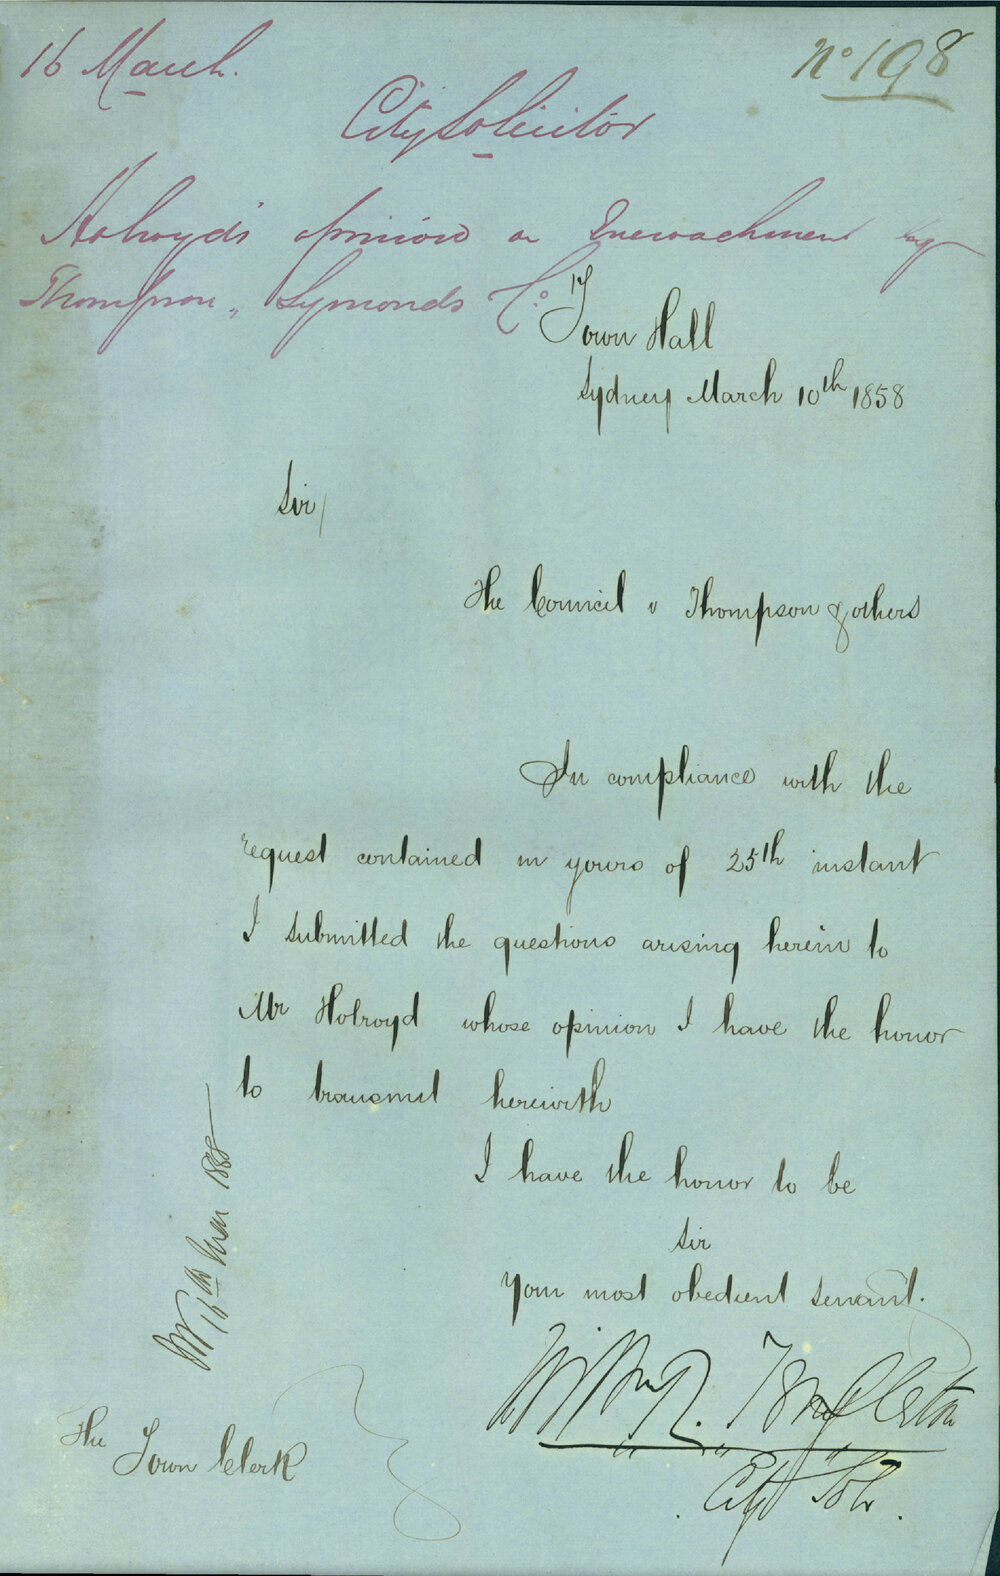 16 March.
No 198
City Solicitor
Holroyd's opinion on Encroachment by
Thompson, Symonds Co.
17
Town Hall
Sydney March 10th 1858
Sir/
The Council v Thompson & others
In compliance with the
request contained in yours of 25th instant
I submitted the questions arising herein to
Mr Holroyd whose opinion I have the honor
to transmit herewith
I have the honor to be
Sir
Your most obedient servant.
City Solr.
The
Town Clerk
16th Mar 1858